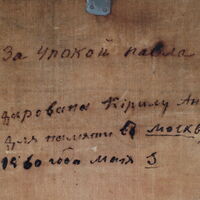 За упокой павла
дарована Кірилу Ан
для памяти в москв
1860 года мая 3